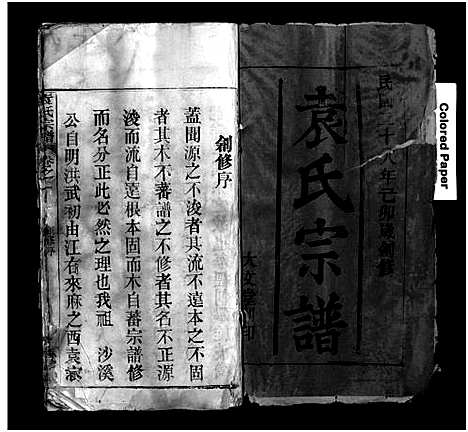 民國二十八年己卯歲創修
袁氏宗譜
Colored Paper
創修序
蓋聞源之不浚者其流不遠本之不固
者其木不蕃譜之不修者其名不正源
浚而流自遠根本固而木自蕃宗譜修
而名分正此必然之理也我祖 沙溪
公自明洪武初由江右來麻之西袁家